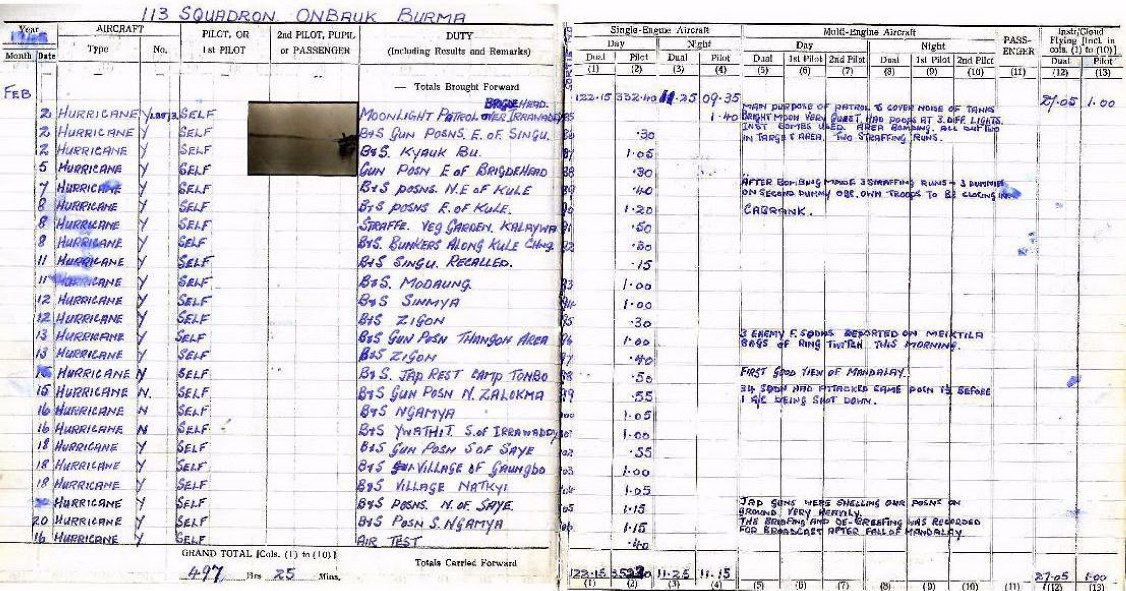 113 SQUADRON ONBAUK BURMA
Year AIRCRAFT PILOT, OR 1ST PILOT 2ND PILOT, PUPIL OR PASSENGER DUTY (Including Results and Remarks)
Month Date Type No.
Single-Engine Aircraft Multi-Engine Aircraft PASS-ENGER Instr/Cloud Flying [Incl. in cols. (1) to (10)]
Day Night Day Night
Dual Pilot Dual Pilot Dual 1st Pilot 2nd Pilot Dual 1st Pilot 2nd Pilot Dual Pilot
(1) (2) (3) (4) (5) (6) (7) (8) (9) (10) (11) (12) (13)
FEB
— Totals Brought Forward 122.15 332.40 11.25 09.35 27.05 1.00
BRIGDEHEAD.
2 HURRICANE Y SELF MOONLIGHT PATROL OVER IRRAWADDY 85 1.40
MAIN PURPOSE OF PATROL TO COVER NOISE OF TANKS
BRIGHT MOON VERY QUIET. HAD POOPS AT 3 DIFF. LIGHTS.
2 HURRICANE Y SELF B&S GUN POSNS. E. OF SINGU. 86 .30
INST BOMBS USED. AREA BOMBING. ALL OUR TWO
IN TARGET AREA. TWO STRAFFING RUNS.
2 HURRICANE Y SELF B&S. KYAUK BU. 87 1.05
5 HURRICANE Y SELF GUN POSN E OF BRIGDEHEAD 88 .30
7 HURRICANE Y SELF B&S POSNS. N.E OF KULE 89 .40
AFTER BOMBING MADE 3 STRAFFING RUNS - 3 DUMMIES
ON SECOND DUMMY OBS. OWN TROOPS TO BE CLOSING IN
8 HURRICANE Y SELF B&S POSNS E. OF KULE. 90 1.20 CABRANK.
8 HURRICANE Y SELF STRAFFE. VEG GARDEN. KALAYWA 91 .50
8 HURRICANE Y SELF B&S. BUNKERS ALONG KULE CHNG. 92 .30
11 HURRICANE Y SELF B&S SINGU. RECALLED. .15
11 HURRICANE Y SELF B&S. MODAUNG. 93 1.00
12 HURRICANE Y SELF B&S SINMYA 94 1.00
12 HURRICANE Y SELF B&S ZIGON 95 .30
13 HURRICANE Y SELF B&S GUN POSN THANGON AREA 96 1.00
3 ENEMY F. SQDNS REPORTED ON MEIKTILA
BAGS OF RING TWITCH THIS MORNING.
13 HURRICANE Y SELF B&S ZIGON 97 .40
HURRICANE N SELF B&S. JAP REST CAMP TONBO 98 .50 FIRST GOOD VIEW OF MANDALAY.
15 HURRICANE N. SELF B&S GUN POSN N. ZALOKMA 99 .55
34 SQDN HAD ATTACKED SAME POSN BEFORE
1 A/C BEING SHOT DOWN.
16 HURRICANE N SELF B&S NGAMYA 100 1.05
16 HURRICANE N SELF B&S YWATHIT. S. OF IRRAWADDY 101 1.00
18 HURRICANE Y SELF B&S GUN POSN S OF SAYE 102 .55
18 HURRICANE Y SELF B&S VILLAGE OF GAUNGBO 103 1.00
18 HURRICANE Y SELF B&S VILLAGE NATKYI 104 1.05
HURRICANE Y SELF B&S POSNS. N. OF SAYE. 105 1.15
JAP GUNS WERE SHELLING OUR POSNS ON
GROUND VERY HEAVILY.
20 HURRICANE Y SELF B&S POSN S. NGAMYA 106 1.15
THE BRIEFING AND DE-BRIEFING WAS RECORDED
FOR BROADCAST AFTER FALL OF MANDALAY.
16 HURRICANE Y SELF AIR TEST .40
GRAND TOTAL [Cols. (1) to (10)]
497 Hrs 25 Mins.
Totals Carried Forward 122.15 11.25 11.15 27.05 1.00
(1) (2) (3) (4) (5) (6) (7) (8) (9) (10) (11) (12) (13)